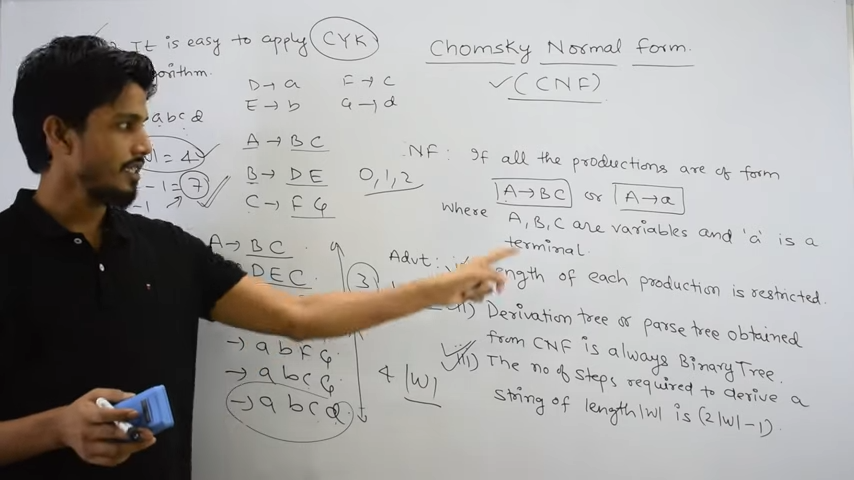 It is easy to apply CYK
gorithm.
abcd
= 4
- 1 = 7
- 1
D → a F → c
E → b G → d
A → BC
B → DE 0,1,2
C → FG
A → BC
DEC
3
→ abFG
→ abcG
→ abcd
4 |w|
Chomsky Normal form.
(CNF)
NF: If all the productions are of form
A→BC or A→a
where A,B,C are variables and 'a' is a
terminal.
Advt:
length of each production is restricted.
II) Derivation tree or parse tree obtained
from CNF is always Binary Tree.
III) The no of steps required to derive a
string of length |w| is (2|w|-1).